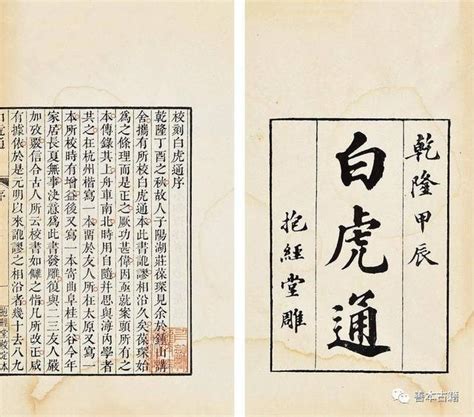 乾隆甲辰
白虎通
抱經堂雕
校刻白虎通序
乾隆丁酉之秋故人子陽湖莊葆琛見余於鍾山講
舍攜有所校白虎通本此書譌謬相沿久矣葆琛始
為之條理而是正之厥功甚偉因亟就案頭所有之
本傳錄其上舟車南北時用自隨并思與海內學者
共之在杭州楷寫一本留於友人所在太原又寫一
本所校時有增益後又寫一本寄曲阜桂未谷今年
家居長夏無事決意為此書發雕復與二三友人嚴
加攷覈信合古人所云校書如讎之恉凡所改正咸
有據依於是元明以來訛謬之相沿者幾十去八九
白虎通 序
善本古籍